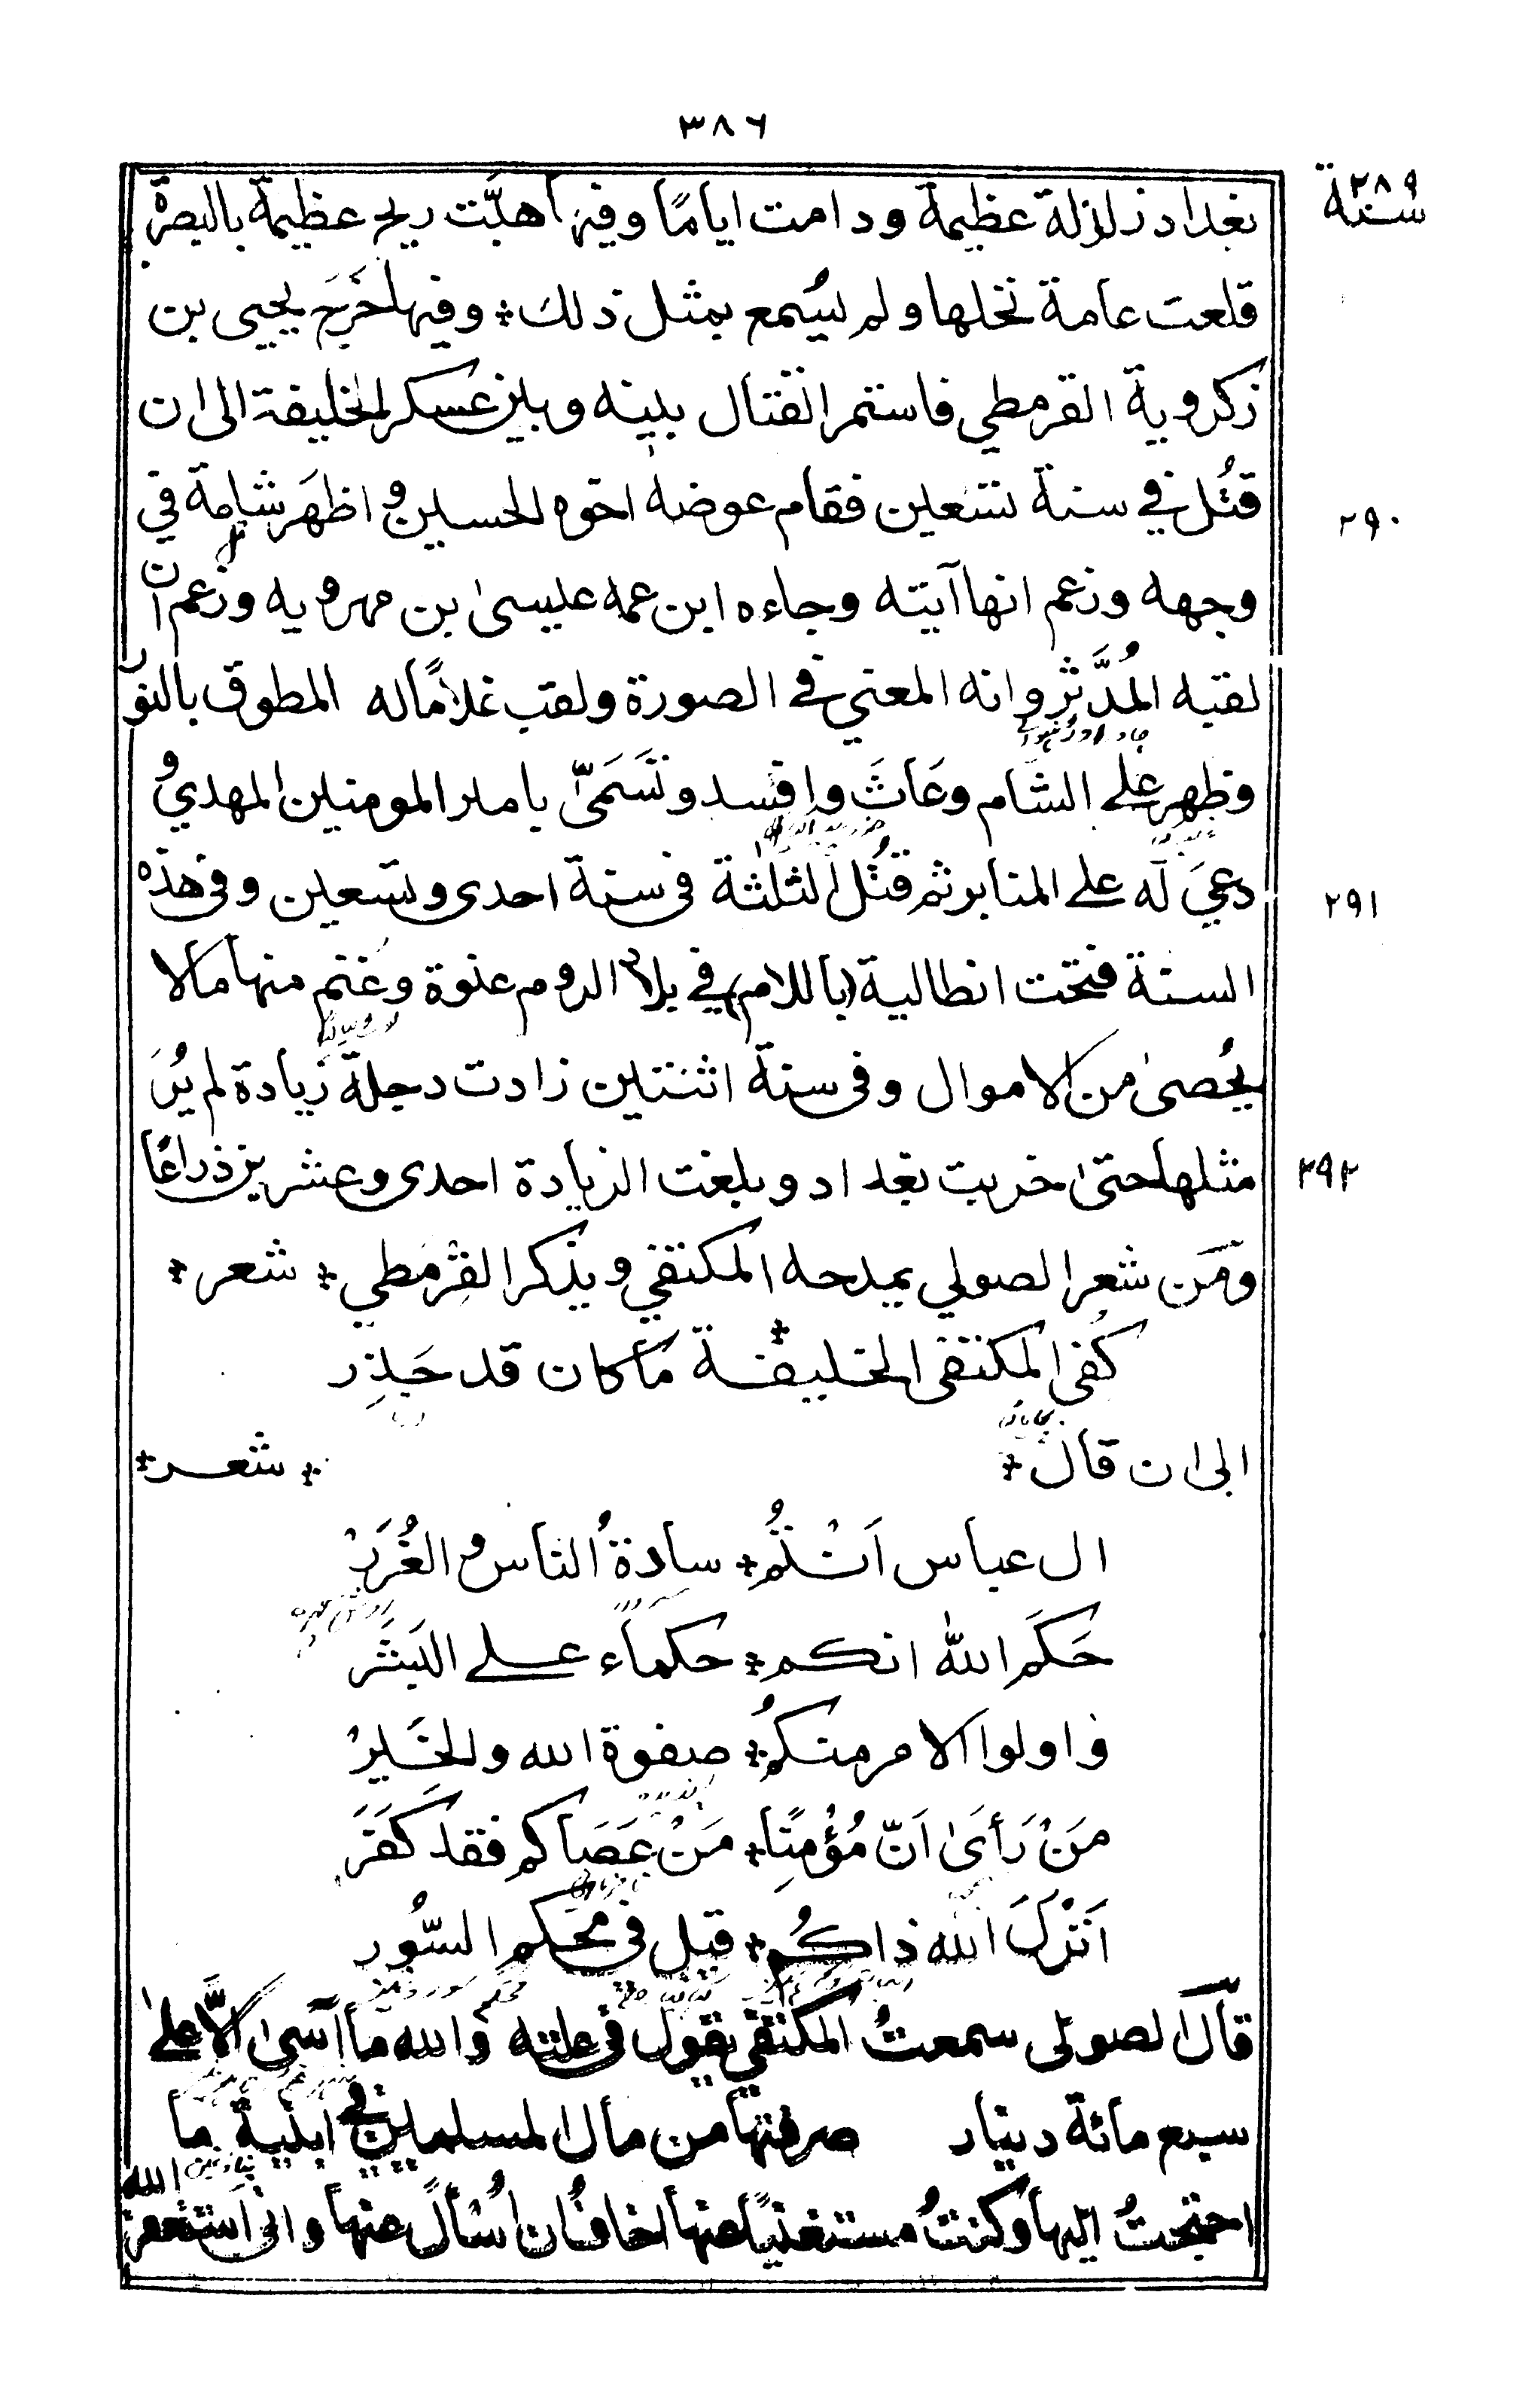 ٣٨٦
سنة ٢٨٩
بغداد زلزلة عظيمة ودامت ايامًا وفيها هبّت ريح عظيمة بالبصرة
قلعت عامة نخلها ولم يُسمع بمثل ذلك * وفيها خَرَجَ يحيى بن
زكروية القرمطي فاستمر القتال بينه وبين عسكر الخليفة الى ان
قتُل في سنة تسعين فقام عوضه اخوه الحسين و اظهَر شامة في
٢٩٠
وجهه وزعم انها آيته وجاءه ابن عمه عيسىٰ بن مهرويه وزعم ان
لقبه المُدَّثر وانه المعني في الصورة ولقب غلامًا له المطوق بالنور
وظهر على الشام وعَاثَ وافسد وتَسَمَىّ بامير المومنين المهدي و
دعيَ له على المنابر ثم قتُل الثلثة فى سنة احدى وتسعين وفى هذه
٢٩١
السنة فتحت انطالية (باللام) في بلاد الروم عنوة وغُنم منها مالا
يُحصىٰ من الاموال وفى سنة اثنتين زادت دجلة زيادة لم يُرَ
مثلها حتىٰ خربت بغداد وبلغت الزيادة احدى وعشرين ذراعًا
٢٩٢
ومن شعر الصولي يمدحه المكتفي ويذكر القرمطي * شعر *
كُفى المكتفى الخليفة * ما كان قد حَذِر
الى ان قال * * شعر *
ال عباس اَنْتُمُ * سادةُ الناس و الغُرَرْ
حَكَم اللهُ انكم * حكماء على البَشَر
واولوا الامر منكُم * صفوة الله والخَيرْ
مَنْ رَأىَ اَنّ مُؤْمِنًا * مَنْ عَصَاكم فقد كَفَرَ
اَنْزلَ الله ذاكُم * قبل فى محكم السُّور
قال الصولى سمعتُ المكتفي يقول فى علته والله ما آسىٰ الّا علىٰ
سبع مائة دينار صرفتها من مال المسلمين في ابنية ما
احتجتُ اليها وكنتُ مستغنيًا عنها اخاف ان اُسْألَ عنها وانى استغفر الله